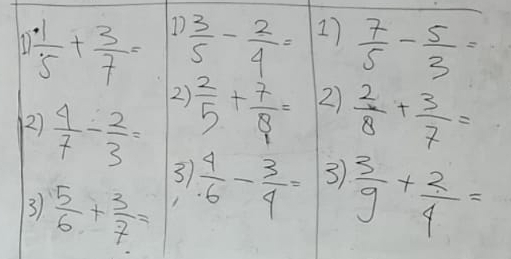 1) 1/5 + 3/7 =
2) 4/7 - 2/3 =
3) 5/6 + 3/7 =
1) 3/5 - 2/4 =
2) 2/5 + 7/8 =
3) 4/6 - 3/4 =
1) 7/5 - 5/3 =
2) 2/8 + 3/7 =
3) 3/9 + 2/4 =